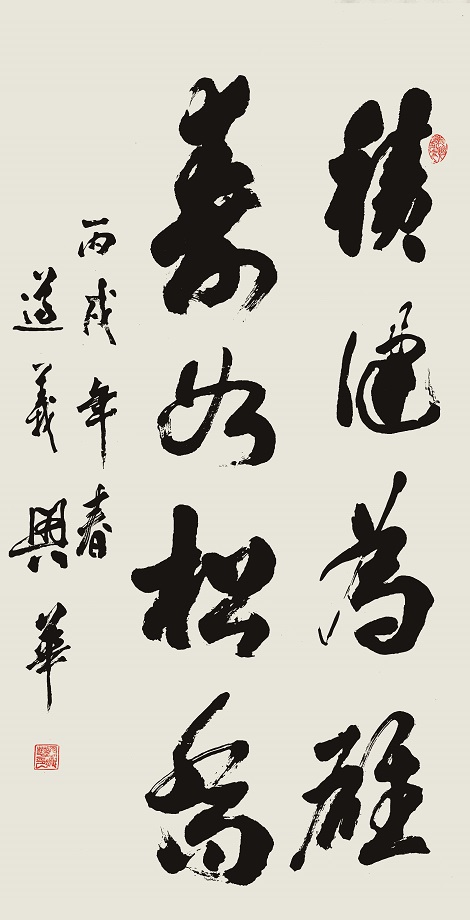 積健為雄
壽如松喬
丙戌年春
遵義興華